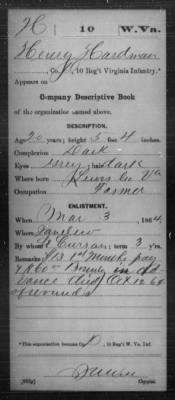 H | 10 | W. Va.
Henry Hardman
Co. D, 10 Reg't Virginia Infantry.*
Appears on
Company Descriptive Book
of the organization named above.
DESCRIPTION.
Age 20 years; height 5 feet 4 inches.
Complexion Dark
Eyes Grey; hair dark
Where born Lewis Co Va
Occupation Farmer
ENLISTMENT.
When Mar 3, 1864.
Where
By whom Lt Curran; term 3 y'rs.
Remarks $13 1st Months pay
& $60 Bounty in ad
vance Died Oct 12 64
of wounds
*This organization became Co. D, 10 Reg't W. Va. Inf.
Copyist.